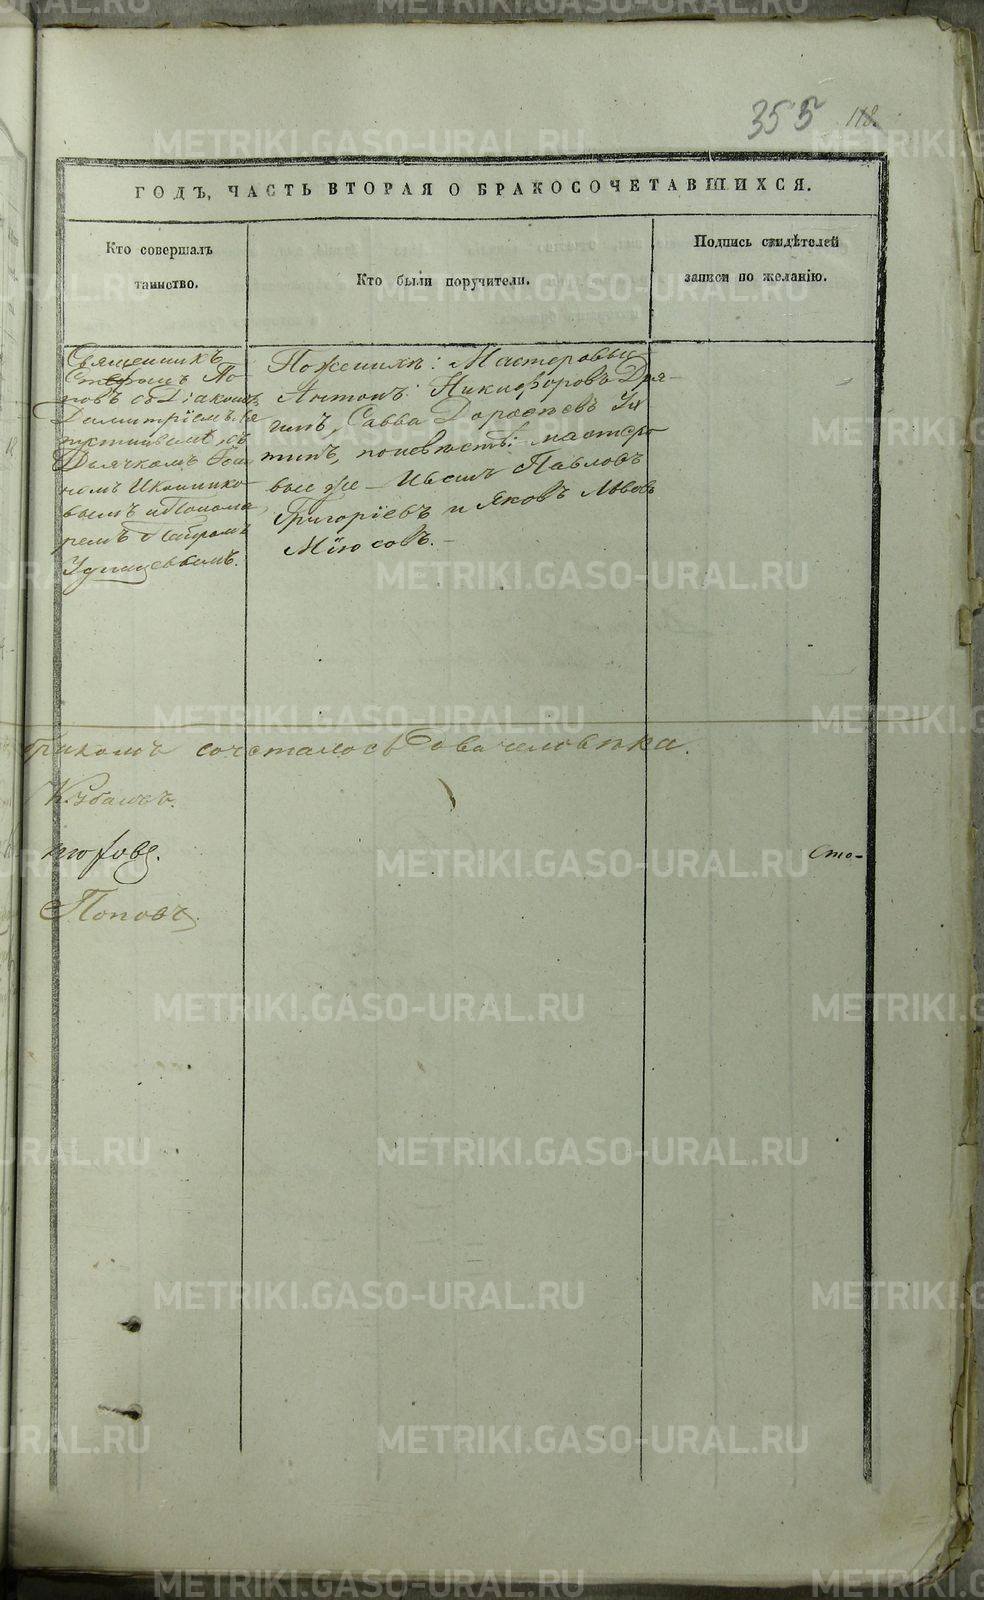 355 118.
ГОДЪ, ЧАСТЬ ВТОРАЯ О БРАКОСОЧЕТАВШИХСЯ.
Кто совершалъ
таинство.
Кто были поручители.
Подпись свидѣтелей
записи по желанію.
Священникъ
Стефанъ По-
повъ съ Діакономъ
Димитріемъ
Дьячкомъ
немъ Иконнико-
вымъ и Понома-
ремъ Петромъ
Поженихѣ: Мастеровыи
Антонъ Никифоровъ Дря-
гинъ, Савва
поневѣстѣ: мастеро
вые же Иванъ Павловъ
Григоріевъ и Яковъ Львовъ
Міюсовъ.
бракомъ сочеталось два человѣка.
Кубанев.
Поповъ.
сто-
METRIKI.GASO-URAL.RU